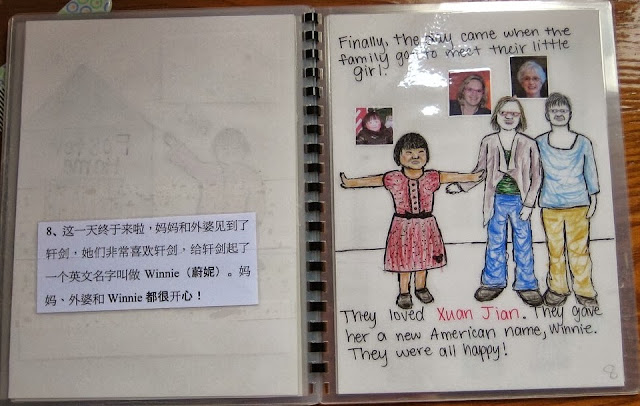 8、这一天终于来啦，妈妈和外婆见到了
轩剑，她们非常喜欢轩剑，给轩剑起了
一个英文名字叫做 Winnie（蔚妮）。妈
妈、外婆和 Winnie 都很开心！
Finally, the day came when the
family got to meet their little
girl.
They loved Xuan Jian. They gave
her a new American name, Winnie.
They were all happy!
8